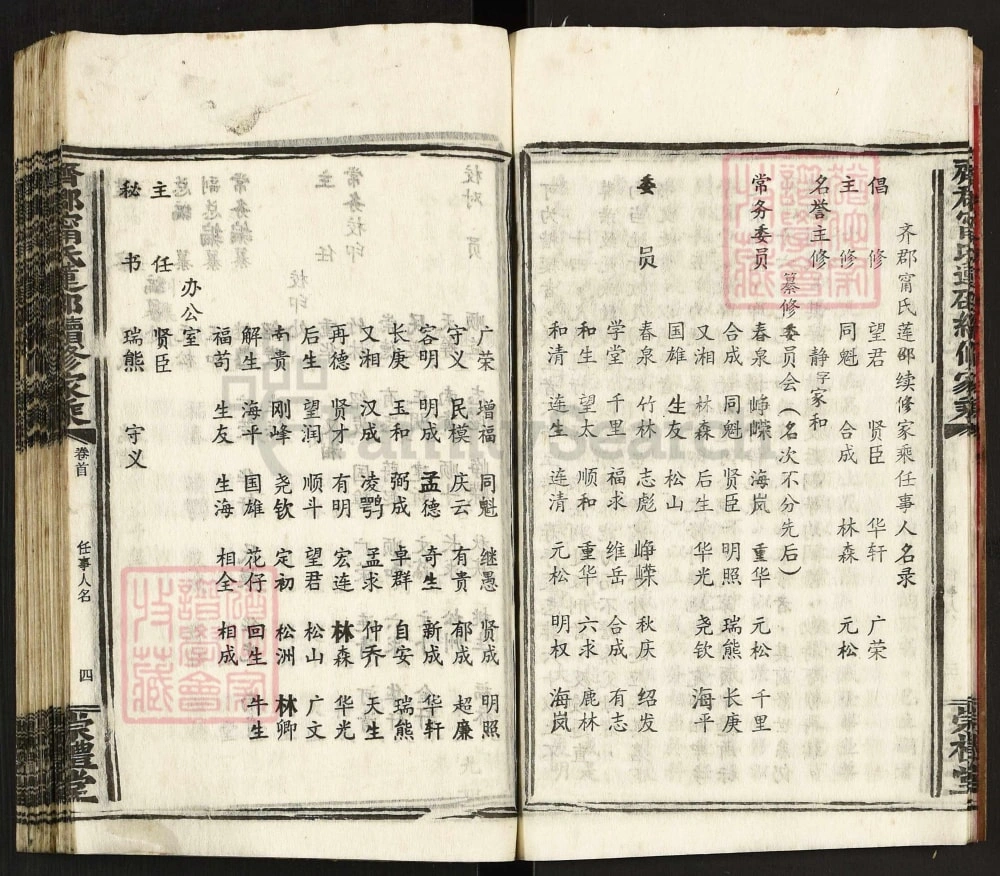 齐郡甯氏莲邵续修家乘任事人名录
倡修 望君 贤臣 华轩 广荣
主修 同魁 合成 林森 元松
名誉主修 静字家和
纂修委员会（名次不分先后）
常务委员 春泉 峥嵘 海岚 重华 元松 千里
合成 同魁 贤臣 明照 瑞熊 长庚
又湘 林森 后生 华光 尧钦 海平
国雄 生友 松山
委员 春泉 竹林 志彪 峥嵘 秋庆 绍发
学堂 千里 福求 维岳 合成 有志
和生 望太 顺和 重华 六求 鹿林
和清 连生 连清 元松 明权 海岚
广荣 增福 同魁 继愚 贤成 明照
守义 民模 庆云 有贵 郁成 超廉
容明 明成 孟德 奇生 新成 华轩
长庚 玉和 弼成 卓群 自安 瑞熊
又湘 汉成 凌鹗 孟求 仲乔 天生
再德 贤才 有明 宏连 林森 华光
后生 望润 顺斗 望君 松山 广文
南贵 刚峰 尧钦 定初 松洲 林卿
解生 海平 国雄 花仔 回生 牛生
福苟 生友 生海 相全 相成
办公室
主任 贤臣
秘书 瑞熊 守义
齊郡甯氏蓮邵續修家乘
卷首
任事人名
四
崇禮堂